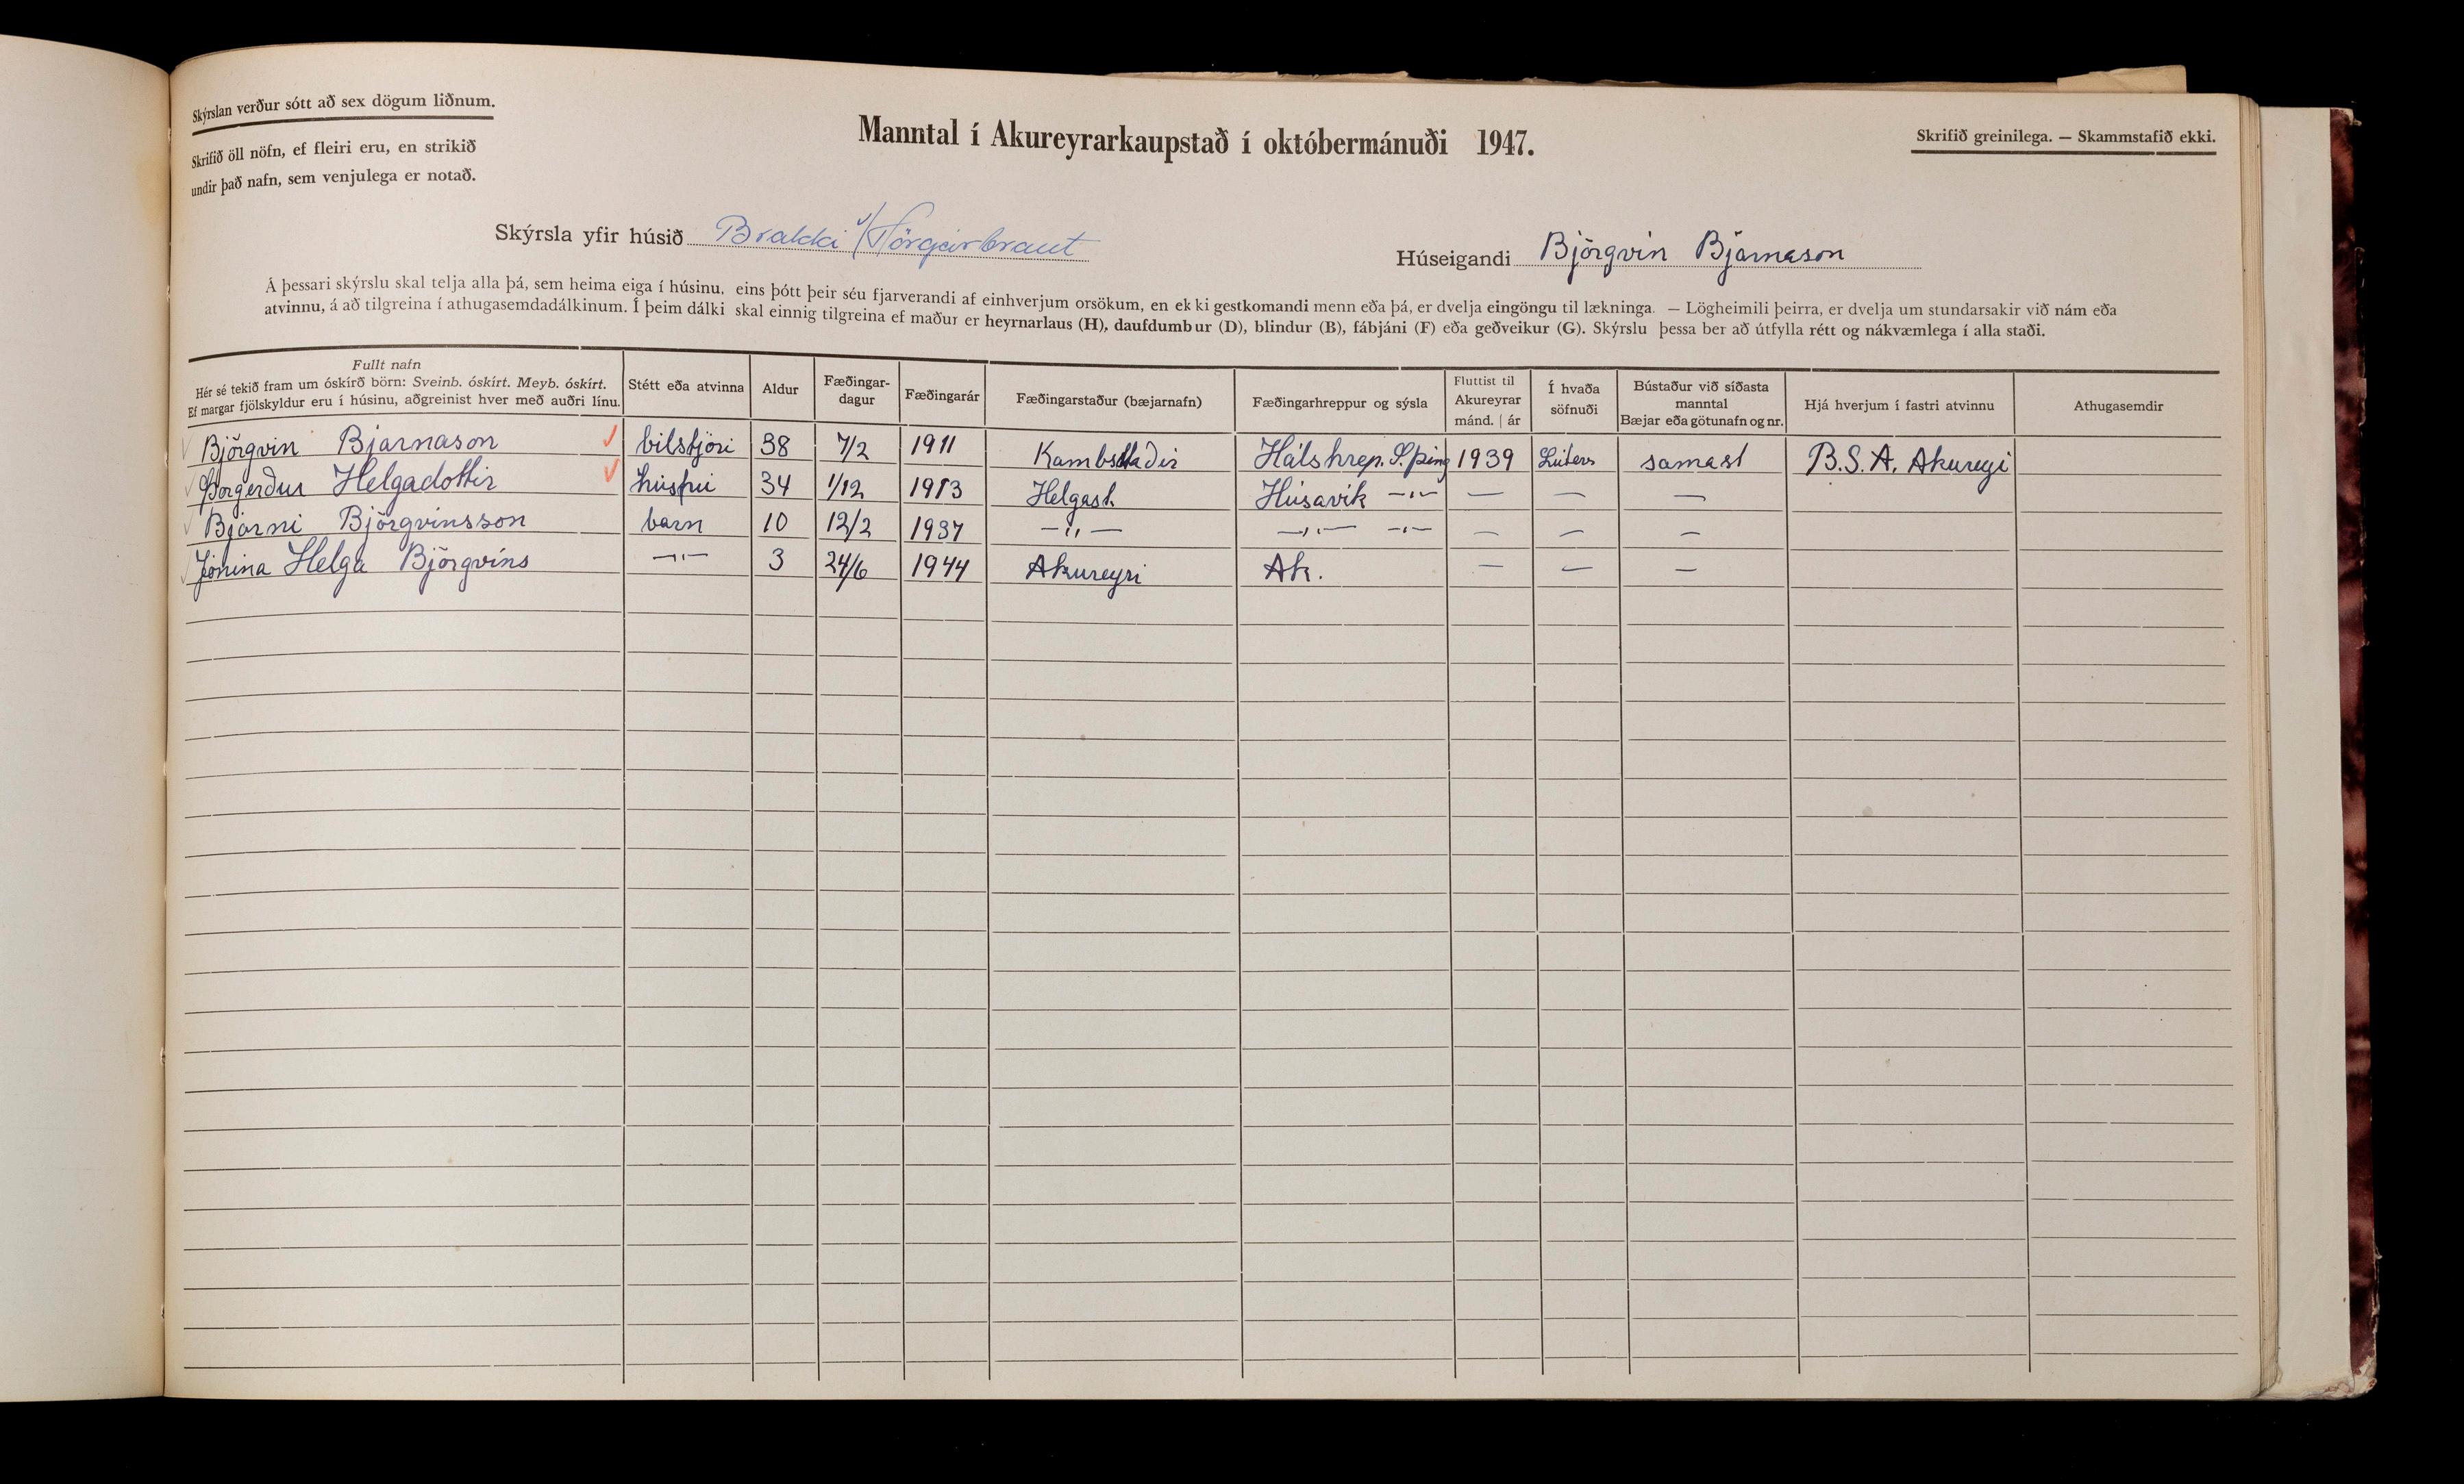 Skýrslan verður sótt að sex dögum liðnum.
Skrifið öll nöfn, ef fleiri eru, en strikið
undir það nafn, sem venjulega er notað.
Manntal í Akureyrarkaupstað í októbermánuði 1947.
Skrifið greinilega. — Skammstafið ekki.
Skýrsla yfir húsið Brakki v/Hörgárbraut
Húseigandi Björgvin Bjarnason
Á þessari skýrslu skal telja alla þá, sem heima eiga í húsinu, eins þótt þeir séu fjarverandi af einhverjum orsökum, en ekki gestkomandi menn eða þá, er dvelja eingöngu til lækninga. — Lögheimili þeirra, er dvelja um stundarsakir við nám eða
atvinnu, á að tilgreina í athugasemdadálkinum. Í þeim dálki skal einnig tilgreina ef maður er heyrnarlaus (H), daufdumbur (D), blindur (B), fábjáni (F) eða geðveikur (G). Skýrslu þessa ber að útfylla rétt og nákvæmlega í alla staði.
Fullt nafn
Hér sé tekið fram um óskírð börn: Sveinb. óskírt. Meyb. óskírt.
Ef margar fjölskyldur eru í húsinu, aðgreinist hver með auðri línu.
Stétt eða atvinna
Aldur
Fæðingar-
dagur
Fæðingarár
Fæðingarstaður (bæjarnafn)
Fæðingarhreppur og sýsla
Fluttist til
Akureyrar
mánd. | ár
Í hvaða
söfnuði
Bústaður við síðasta
manntal
Bæjar eða götunafn og nr.
Hjá hverjum í fastri atvinnu
Athugasemdir
Björgvin Bjarnason ✓ bílstjóri 38 7/2 1911 Kambsstaðir Hálshrep. S.þing 1939 Luters samast B.S.A. Akureyri
Þorgerður Helgadóttir ✓ húsfrú 34 1/12 1913 Helgast. Húsavík —〃— — — —
Bjarni Björgvinsson barn 10 12/2 1937 —〃— —〃— —〃— — — —
Jónína Helga Björgvins —〃— 3 24/6 1944 Akureyri Ak. — — —